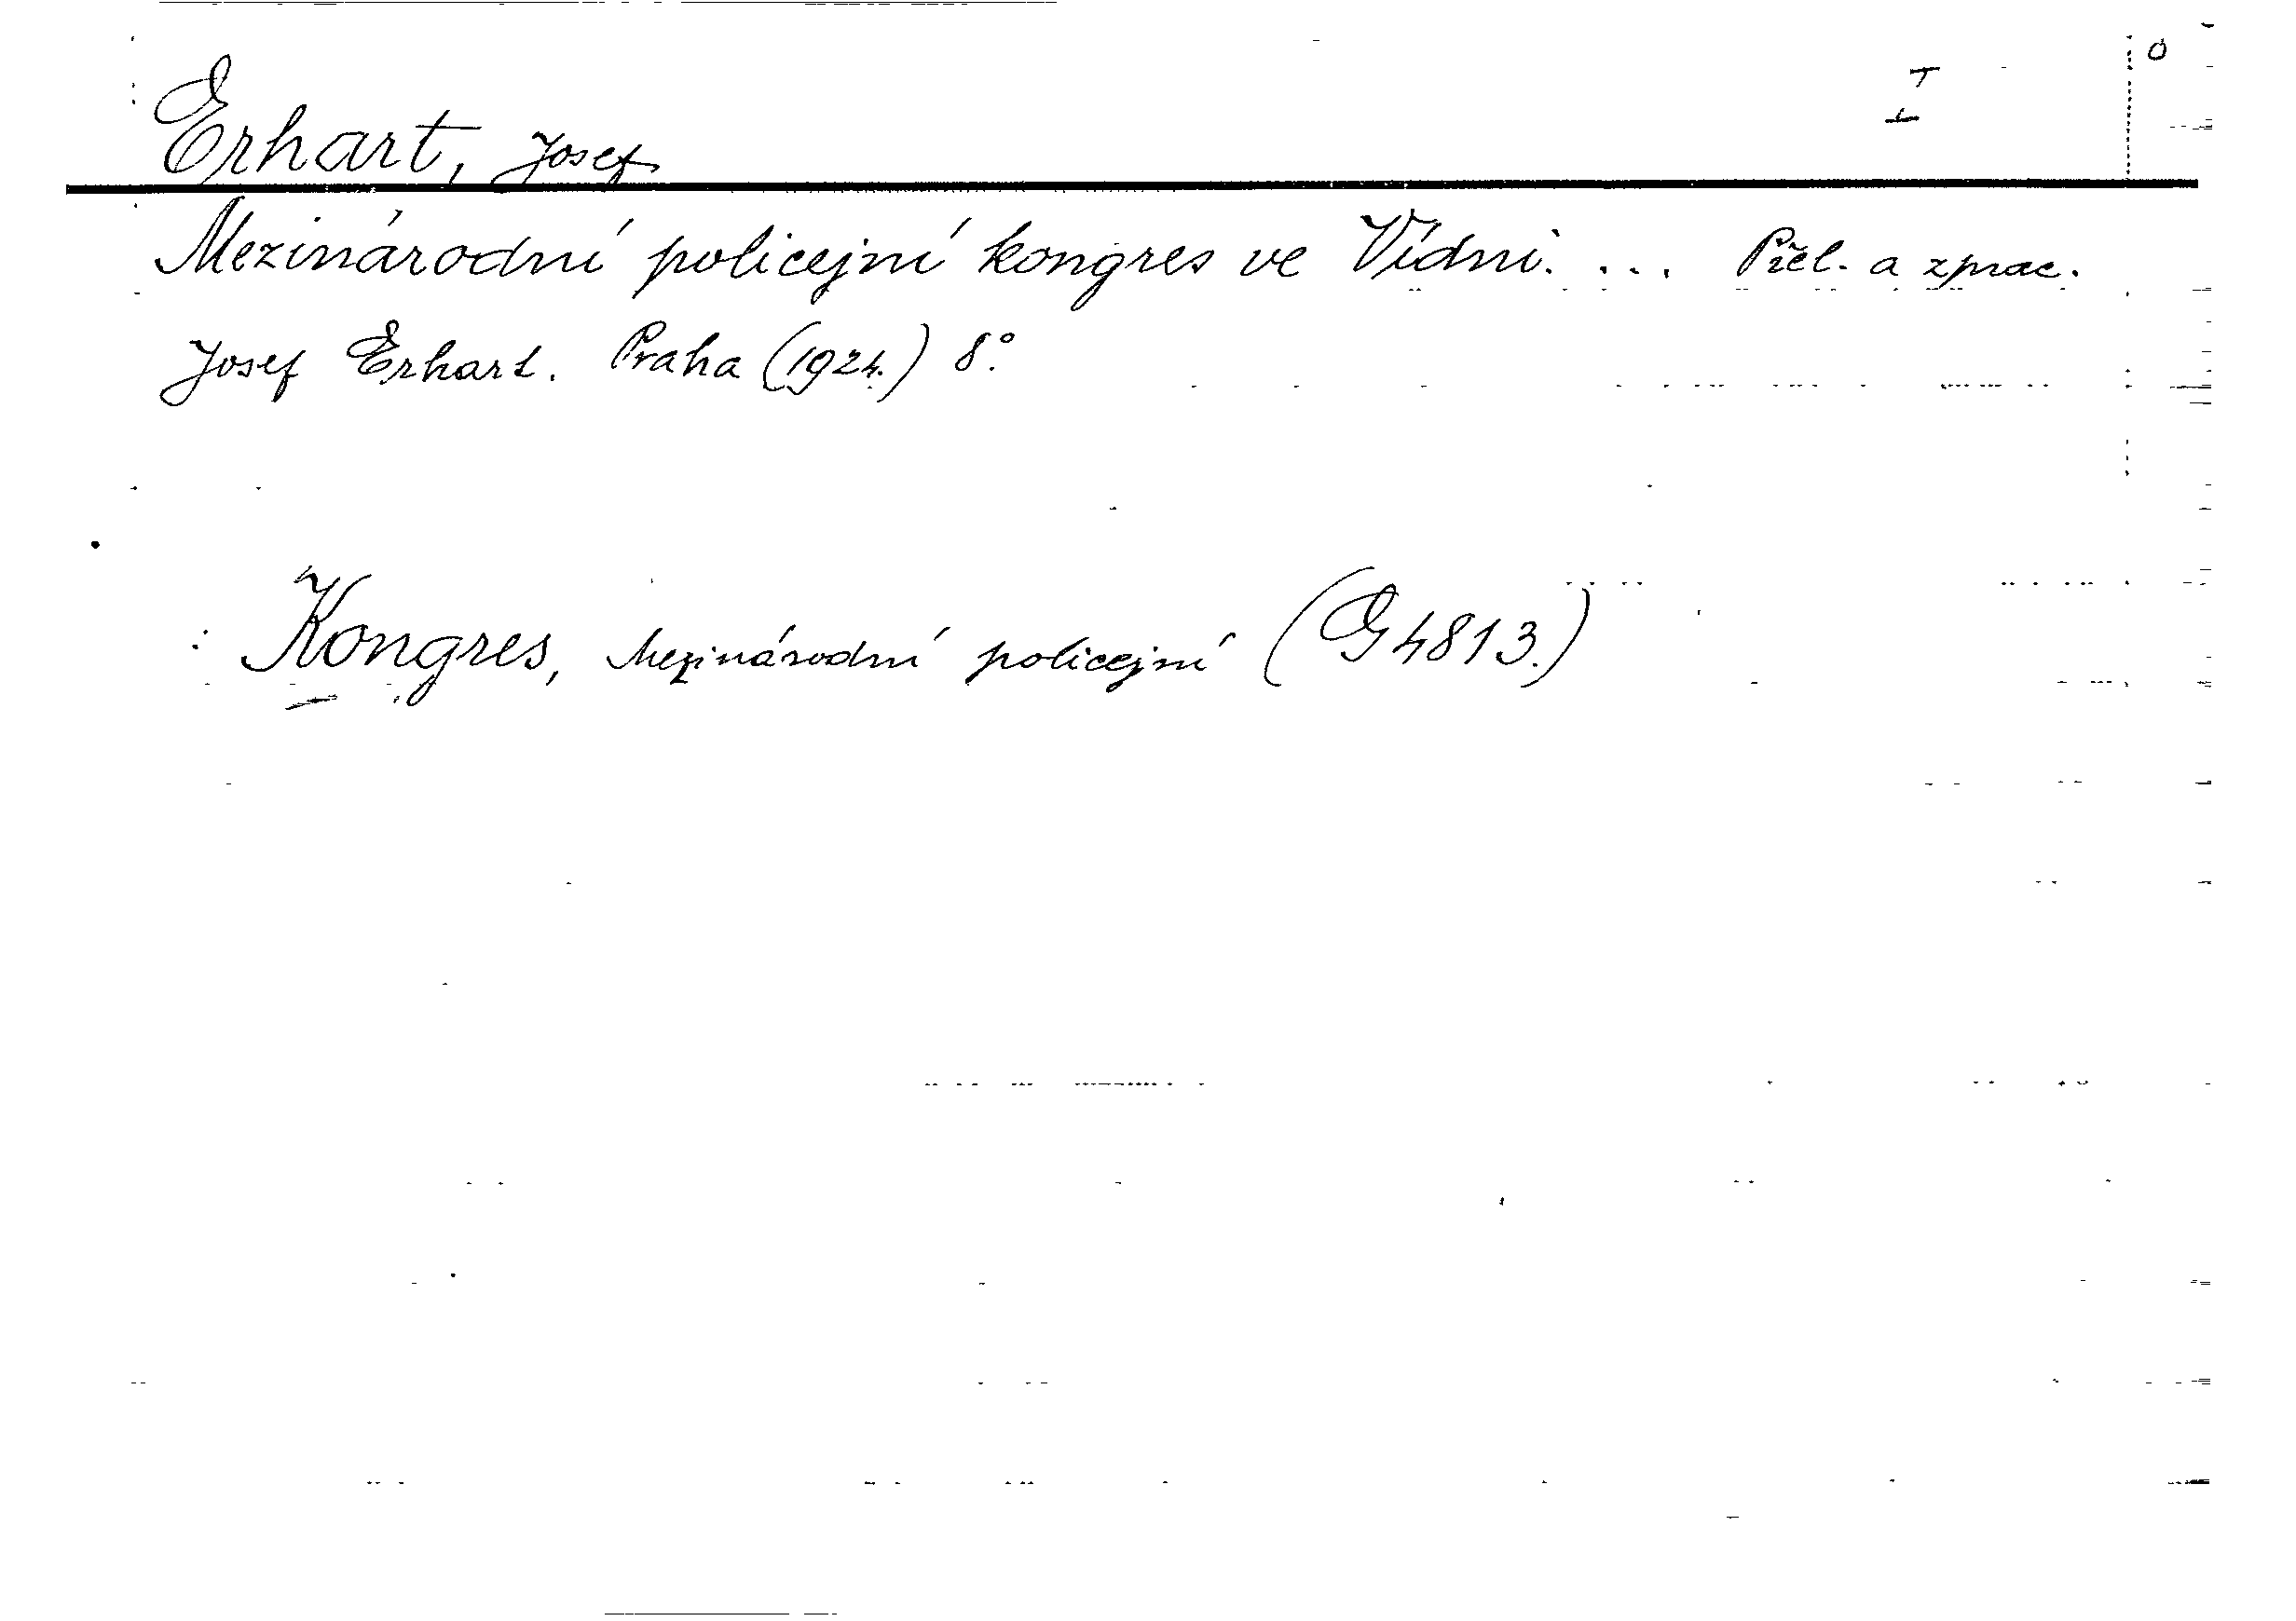 Erhart, Josef
Mezinárodní policejní kongres ve Vídni. ... Přel. a zprac.
Josef Erhart. Praha (1924.) 8°.
Kongres, Mezinárodní policejní (G 4813.)